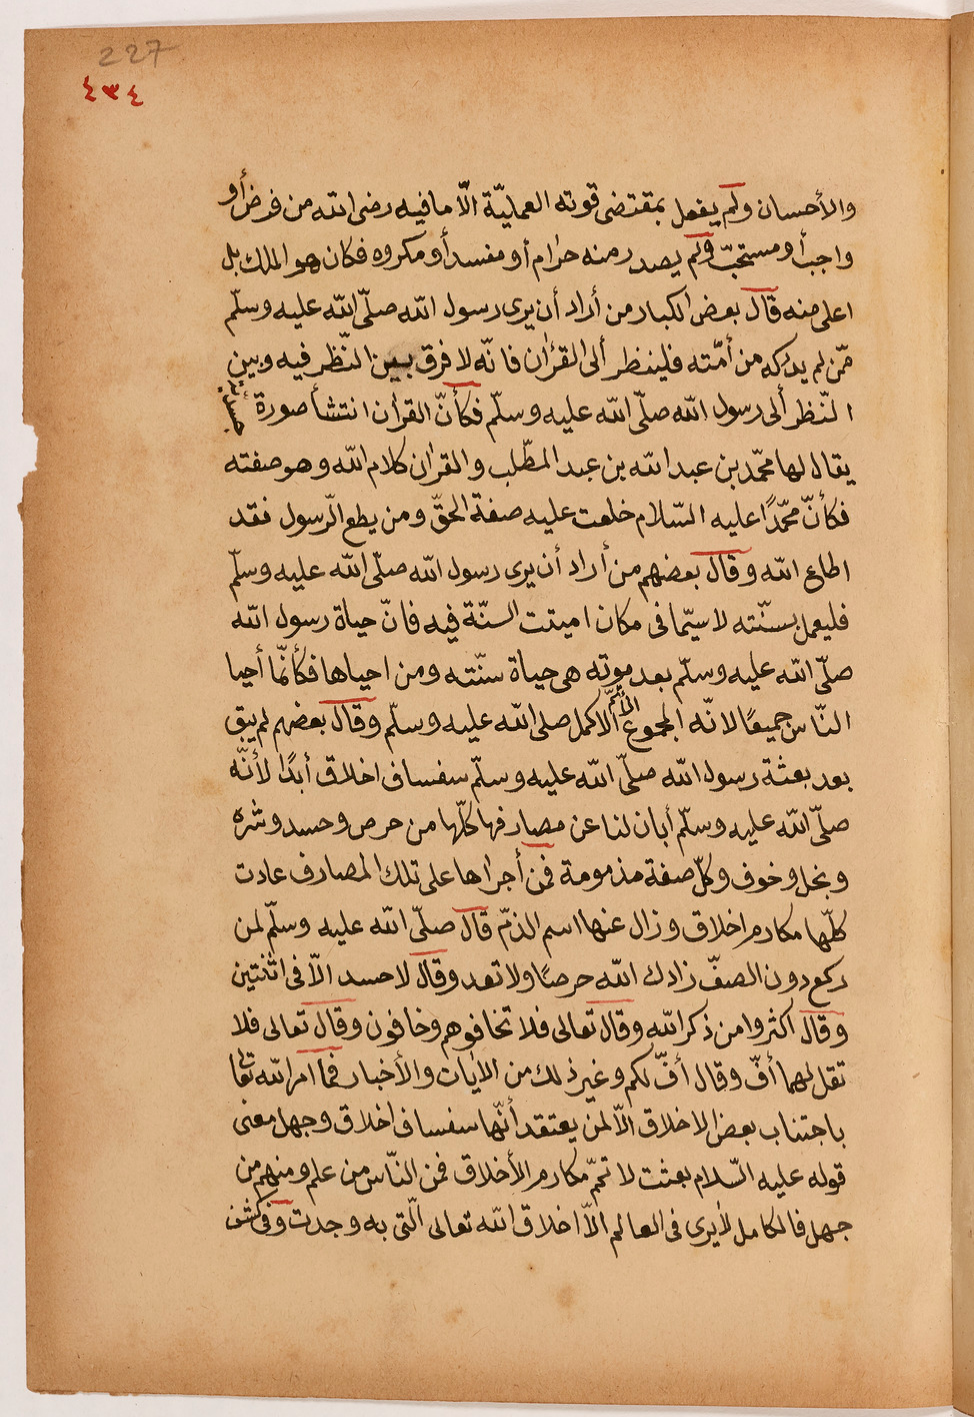 227
٤٣٤
والأحسان ولم يفعل بمقتضى قوته العمليّة الّا ما فيه رضى الله من فرض أو
واجب أو مستحبّ ولم يصدر منه حرام أو مفسد أو مكروه فكان هو الملك بل
اعلى منه قال بعض الكبار من أراد أن يرى رسول الله صلّى الله عليه وسلّم
ممّن لم يدركه من أمّته فلينظر الى القرٰان فانّه لا فرق بين النّظر فيه وبين
النّظر ألى رسول الله صلّى الله عليه وسلّم فكأنّ القرٰان انتشأ صورة جسديّة
يقال لها محمّد بن عبد الله بن عبد المطّلب والقرٰان كلام الله وهو صفته
فكأنّ محمّدًا عليه السّلام خلعت عليه صفة الحقّ ومن يطع الرّسول فقد
اطاع الله وقال بعضهم من أراد أن يرى رسول الله صلّى الله عليه وسلّم
فليعمل بسنّته لا سيّما فى مكان اميتت السنّة فيه فانّ حياة رسول الله
صلّى الله عليه وسلّم بعد موته هى حياة سنّته ومن احياها فكأنّما أحيا
النّاس جميعًا لانّه المجموع الأتمّ الاكمل صلى الله عليه وسلّم وقال بعضهم لم يبق
بعد بعثة رسول الله صلّى الله عليه وسلّم سفساف اخلاق أبدًا لأنّه
صلّى الله عليه وسلّم أبان لنا عن مصارفها كلّها من حرص وحسد وشره
وبخل وخوف وكلّ صفة مذمومة فمن أجراها على تلك المصارف عادت
كلّها مكارم اخلاق وزال عنها اسم الذمّ قال صلّى الله عليه وسلّم لمن
ركع دون الصفّ زادك الله حرصًا ولا تعد وقال لا حسد الّا فى اثنتين
وقال اكثروا من ذكر الله وقال تعالى فلا تخافوهم وخافون وقال تعالى فلا
تقل لهما أفّ وقال أفّ لكم وغير ذلك من الاٰيات والأخبار فما امر الله تعالى
باجتناب بعض الاخلاق الّا لمن يعتقد أنّها سفساف اخلاق وجهل معنى
قوله عليه السّلام بعثت لاتمّم مكارم الأخلاق فمن النّاس من علم ومنهم من
جهل فالكامل لا يرى فى العالم الّا اخلاق الله تعالى الّتى به وجدت وفى كشف